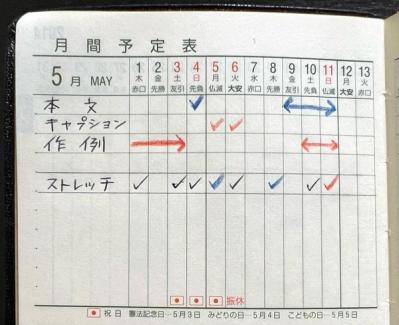 月間予定表
5月 MAY 1 2 3 4 5 6 7 8 9 10 11 12 13
木 金 土 日 月 火 水 木 金 土 日 月 火
赤口 先勝 友引 先負 仏滅 大安 赤口 先勝 友引 先負 仏滅 大安 赤口
本文
キャプション
作例
ストレッチ
振休
祝日 憲法記念日…5月3日 みどりの日…5月4日 こどもの日…5月5日